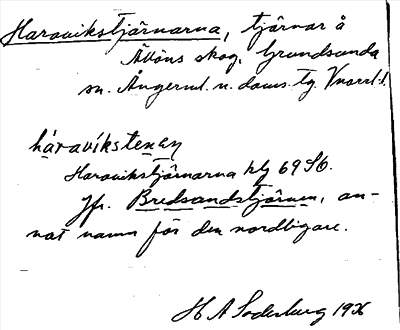 Haravikstjärnarna, tjärnar å
Åvöns skog, Grundsunda
sn. Ångerml. n. doms. tg. Vnorrl. l.
háravíkstenan
Haravikstjärnarna kbl 69 S6.
Jfr. Bredsandstjärnen, an-
nat namn för den nordligare.
H A Söderberg 1936